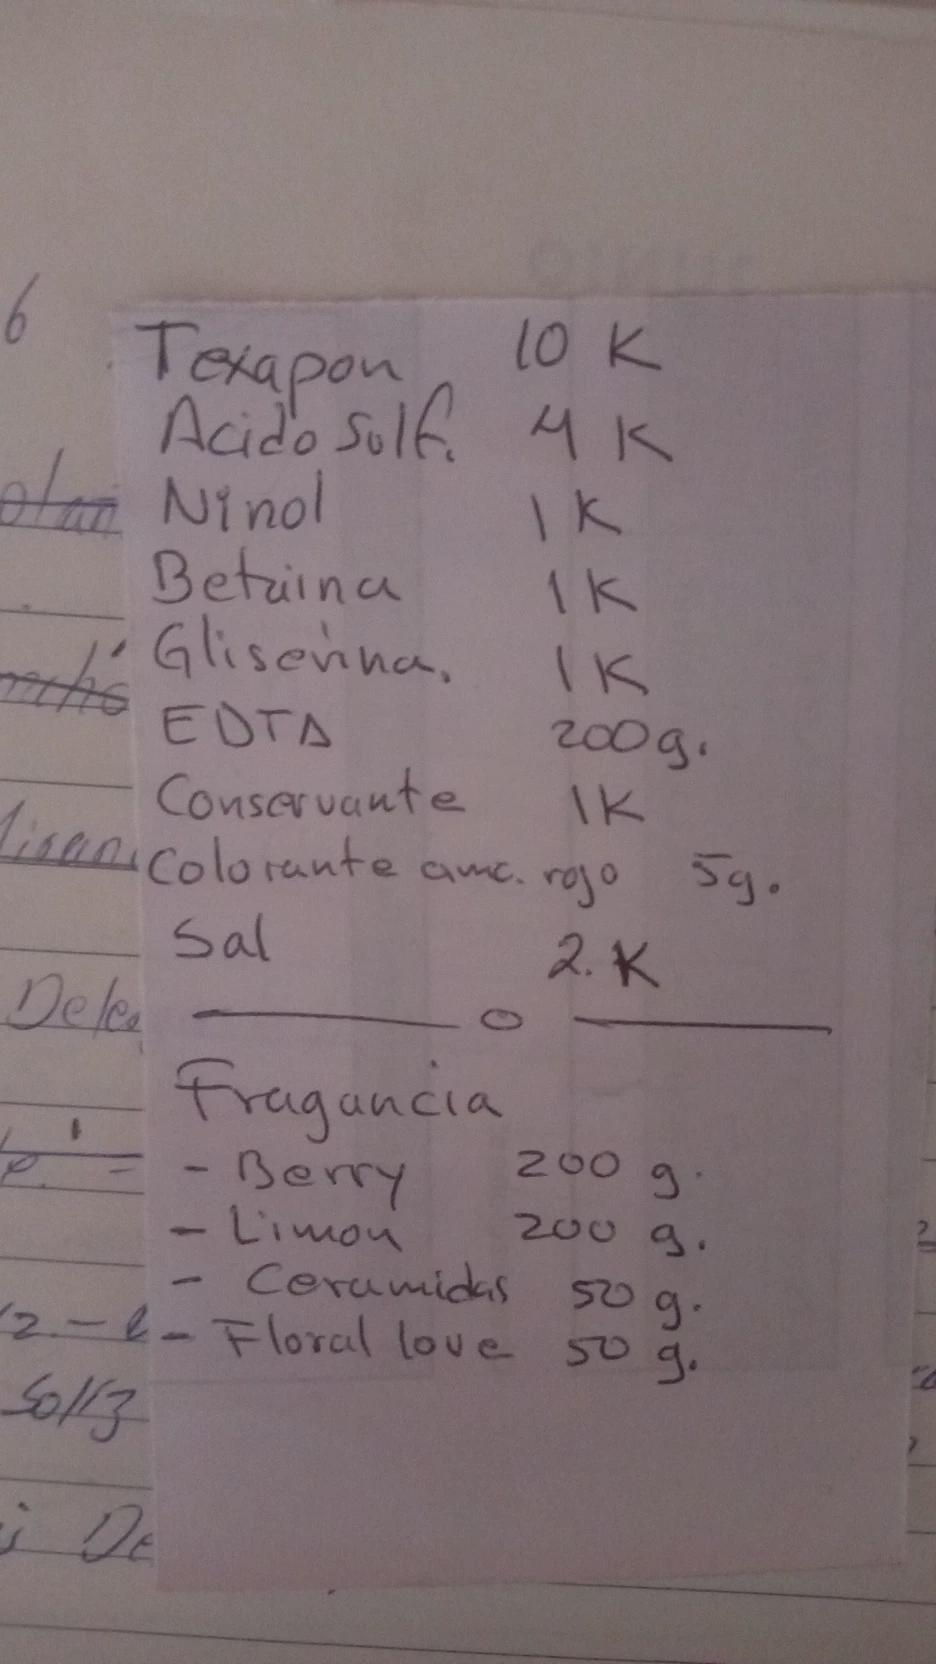 6
Texapon 10 K
Acido Sulf. 4 K
Ninol 1 K
Betaina 1 K
Gliserina. 1 K
EDTA 200 g.
Conservante 1 K
Colorante ama. rojo 5g.
Sal 2. K
o
Fragancia
- Berry 200 g.
- Limon 200 g.
- Ceramidas 50 g.
- Floral love 50 g.